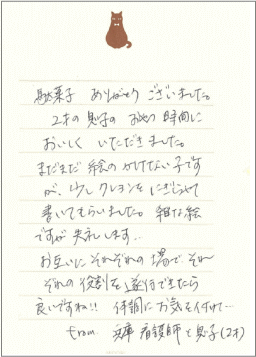 駄菓子 ありがとう ございました。
2才の 息子の おやつ 時間に
おいしく いただきました。
まだまだ 絵の かけない 子です
が、少し クレヨンを にぎらせて
書いてもらいました。 雑な 絵
ですが 失礼します…
お互いに それぞれの 場で それ
ぞれの 役割を 遂行できたら
良いですね!! 体調に 万気を 付けて…
from 兵庫 看護師と 息子(2才)